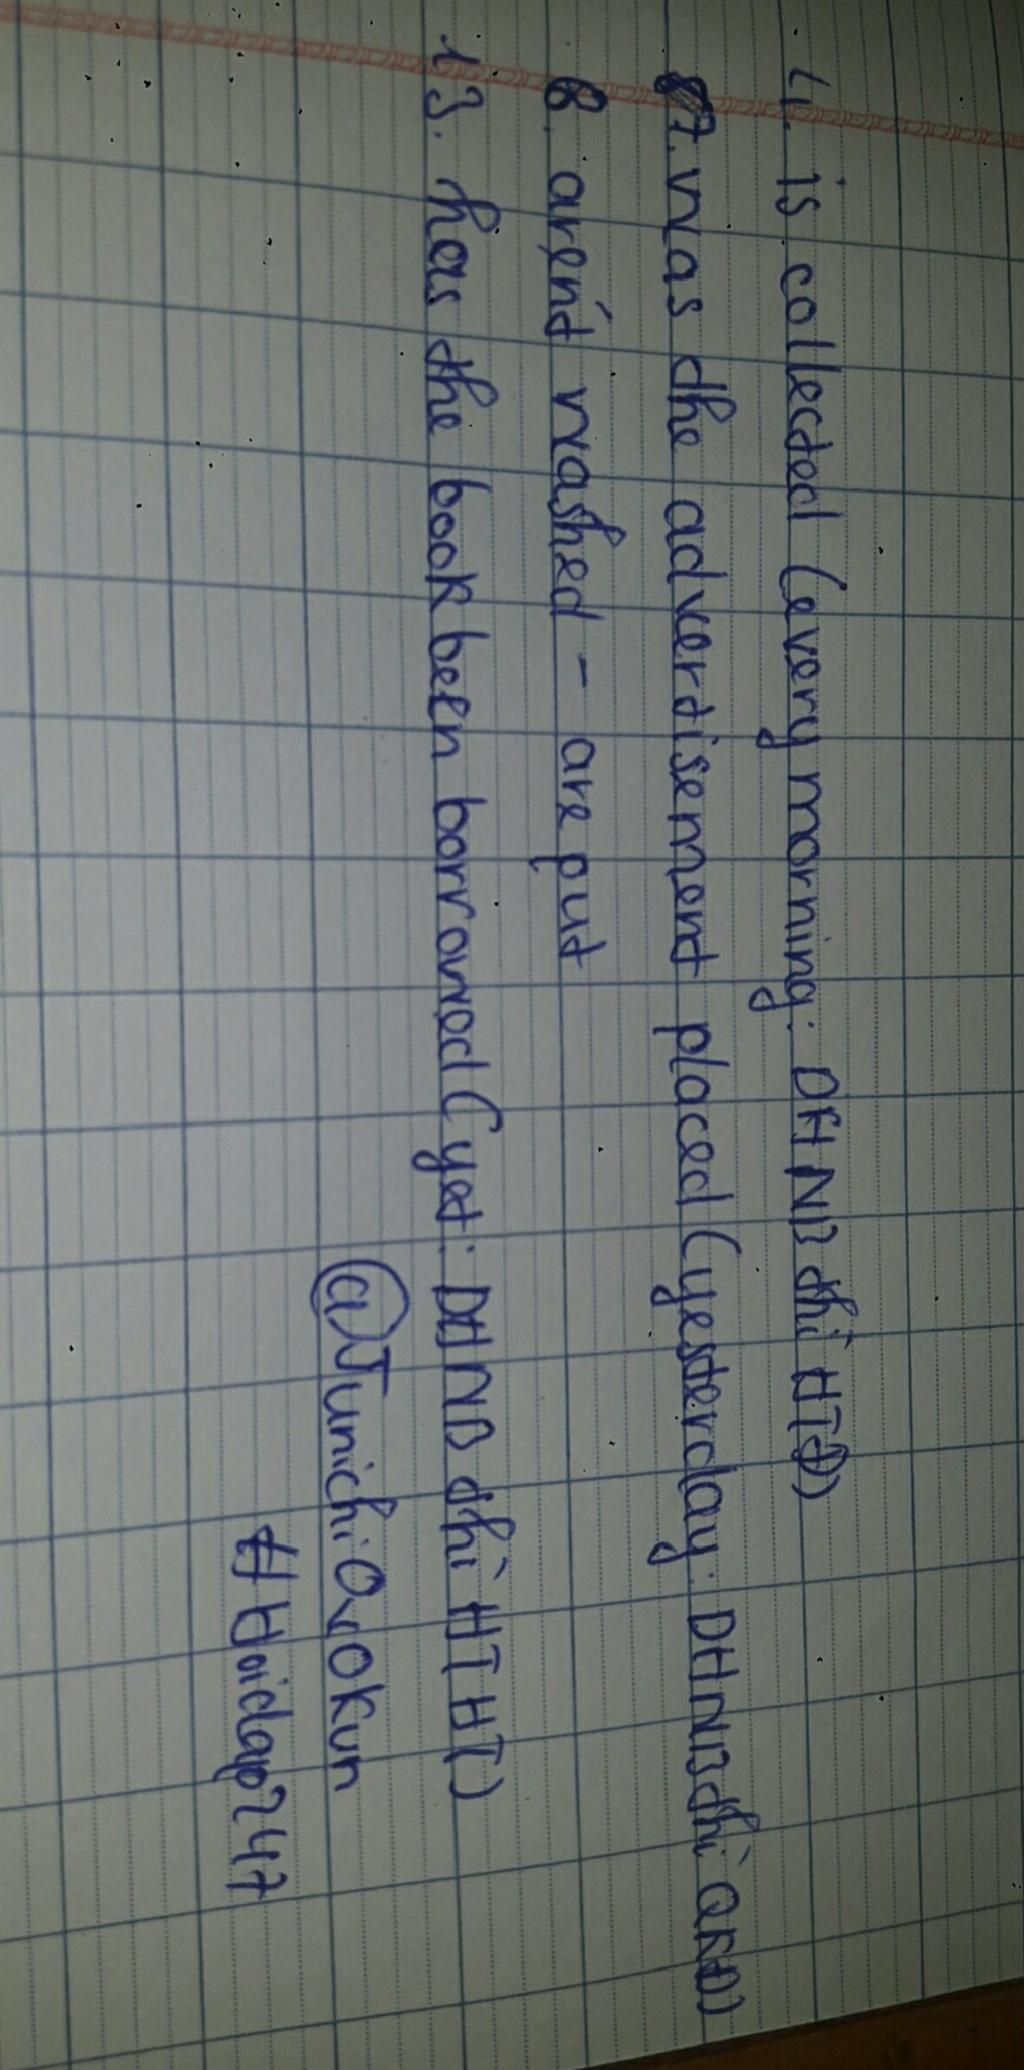 4. is collected (every morning: DHNB thì HTĐ)
7. was the advertisement placed (yesterday: DHNB thì QKĐ)
8. aren't washed - are put
13. has the book been borrowed (yet: DHNB thì HTHT)
@JunichiOvokun
#Hoidap247